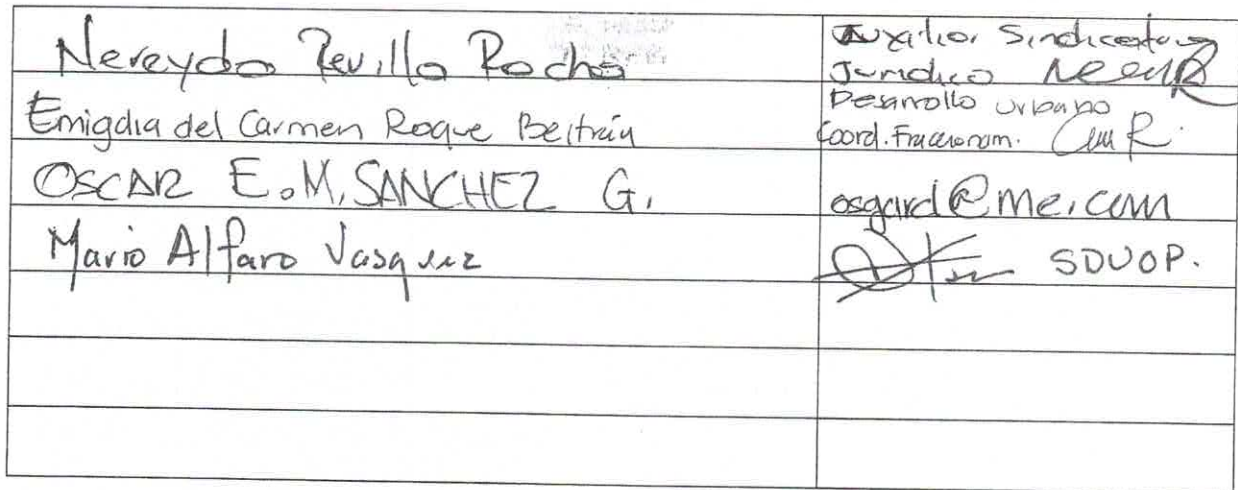 Nereyda Revilla Rocha
Auxiliar Sindicatura
Juridico
Emigdia del Carmen Roque Beltrán
Desarrollo Urbano
Coord. Fraccionam.
OSCAR E.M. SANCHEZ G.
osgard@me.com
Mario Alfaro Vasquez
SDUOP.